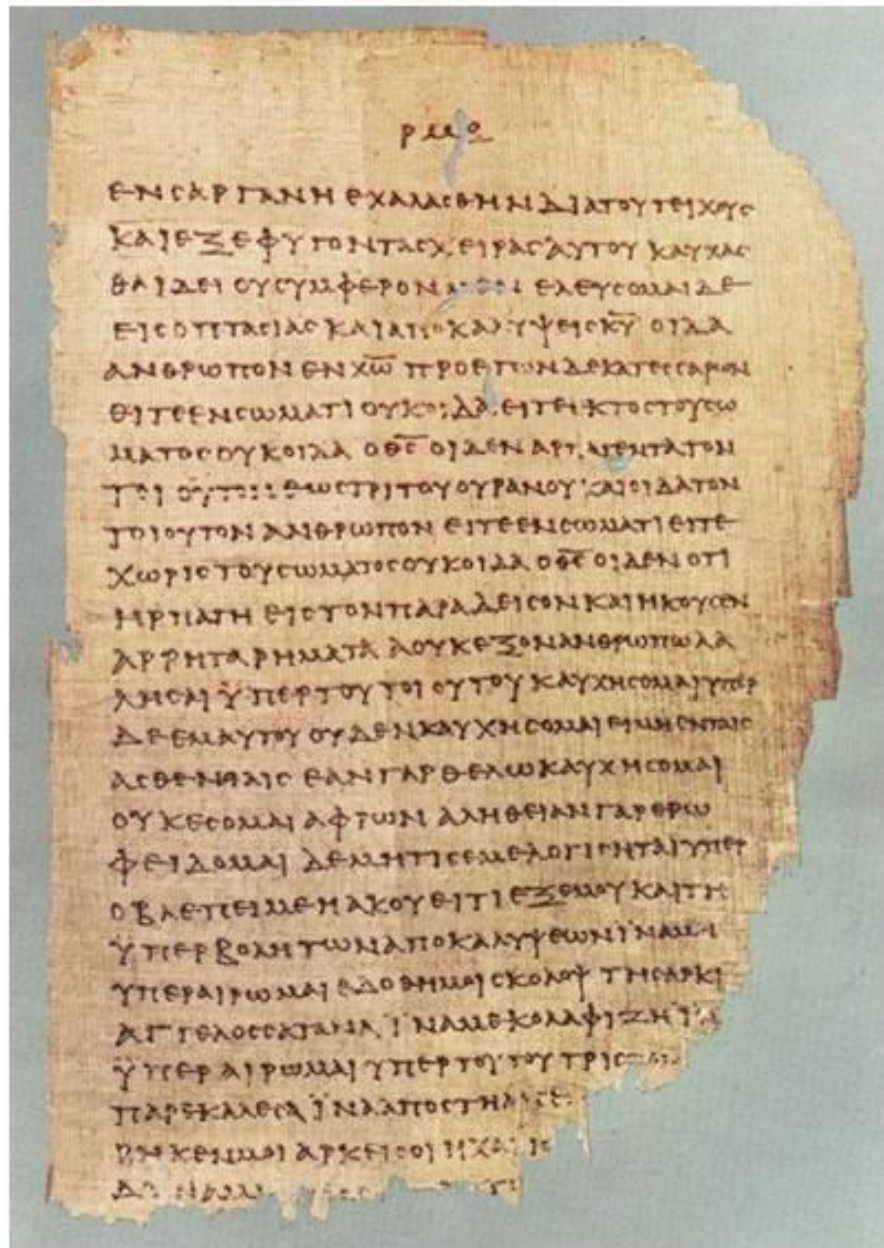 ρμθ
ΕΝ ϹΑΡΓΑΝΗ ΕΧΑΛΑϹΘΗΝ ΔΙΑ ΤΟΥ ΤΕΙΧΟΥϹ
ΚΑΙ ΕΞΕΦΥΓΟΝ ΤΑϹ ΧΕΙΡΑϹ ΑΥΤΟΥ ΚΑΥΧΑϹ
ΘΑΙ ΔΕΙ ΟΥ ϹΥΜΦΕΡΟΝ ΕΛΕΥϹΟΜΑΙ ΔΕ
ΕΙϹ ΟΠΤΑϹΙΑϹ ΚΑΙ ΑΠΟΚΑΛΥΨΕΙϹ Κ̅Υ̅ ΟΙΔΑ
ΑΝΘΡΩΠΟΝ ΕΝ Χ̅Ω̅ ΠΡΟ ΕΤΩΝ ΔΕΚΑΤΕϹϹΑΡΩΝ
ΕΙΤΕ ΕΝ ϹΩΜΑΤΙ ΟΥΚ ΟΙΔΑ ΕΙΤΕ ΕΚΤΟϹ ΤΟΥ ϹΩ
ΜΑΤΟϹ ΟΥΚ ΟΙΔΑ Ο Θ̅Ϲ̅ ΟΙΔΕΝ ΑΡΠΑΓΕΝΤΑ ΤΟΝ
ΤΟΙΟΥΤΟΝ ΕΩϹ ΤΡΙΤΟΥ ΟΥΡΑΝΟΥ ΚΑΙ ΟΙΔΑ ΤΟΝ
ΤΟΙΟΥΤΟΝ ΑΝΘΡΩΠΟΝ ΕΙΤΕ ΕΝ ϹΩΜΑΤΙ ΕΙΤΕ
ΧΩΡΙϹ ΤΟΥ ϹΩΜΑΤΟϹ ΟΥΚ ΟΙΔΑ Ο Θ̅Ϲ̅ ΟΙΔΕΝ ΟΤΙ
ΗΡΠΑΓΗ ΕΙϹ ΤΟΝ ΠΑΡΑΔΕΙϹΟΝ ΚΑΙ ΗΚΟΥϹΕΝ
ΑΡΡΗΤΑ ΡΗΜΑΤΑ Α ΟΥΚ ΕΞΟΝ ΑΝΘΡΩΠΩ ΛΑ
ΛΗϹΑΙ ΫΠΕΡ ΤΟΥ ΤΟΙΟΥΤΟΥ ΚΑΥΧΗϹΟΜΑΙ ΥΠΕΡ
ΔΕ ΕΜΑΥΤΟΥ ΟΥΔΕΝ ΚΑΥΧΗϹΟΜΑΙ ΕΙ ΜΗ ΕΝ ΤΑΙϹ
ΑϹΘΕΝΕΙΑΙϹ ΕΑΝ ΓΑΡ ΘΕΛΩ ΚΑΥΧΗϹΟΜΑΙ
ΟΥΚ ΕϹΟΜΑΙ ΑΦΡΩΝ ΑΛΗΘΕΙΑΝ ΓΑΡ ΕΡΩ
ΦΕΙΔΟΜΑΙ ΔΕ ΜΗ ΤΙϹ ΕΜΕ ΛΟΓΙϹΗΤΑΙ ΥΠΕΡ
Ο ΒΛΕΠΕΙ ΜΕ Η ΑΚΟΥΕΙ ΤΙ ΕΞ ΕΜΟΥ ΚΑΙ ΤΗ
ΫΠΕΡΒΟΛΗ ΤΩΝ ΑΠΟΚΑΛΥΨΕΩΝ ΪΝΑ ΜΗ
ΥΠΕΡΑΙΡΩΜΑΙ ΕΔΟΘΗ ΜΟΙ ϹΚΟΛΟΨ ΤΗ ϹΑΡΚΙ
ΑΓΓΕΛΟϹ ϹΑΤΑΝΑ ΪΝΑ ΜΕ ΚΟΛΑΦΙΖΗ
ΫΠΕΡΑΙΡΩΜΑΙ ΥΠΕΡ ΤΟΥΤΟΥ ΤΡΙϹ
ΠΑΡΕΚΑΛΕϹΑ ΪΝΑ ΑΠΟϹΤΗ
ΡΗΚΕΝ ΜΟΙ ΑΡΚΕΙ ϹΟΙ Η ΧΑΡΙϹ